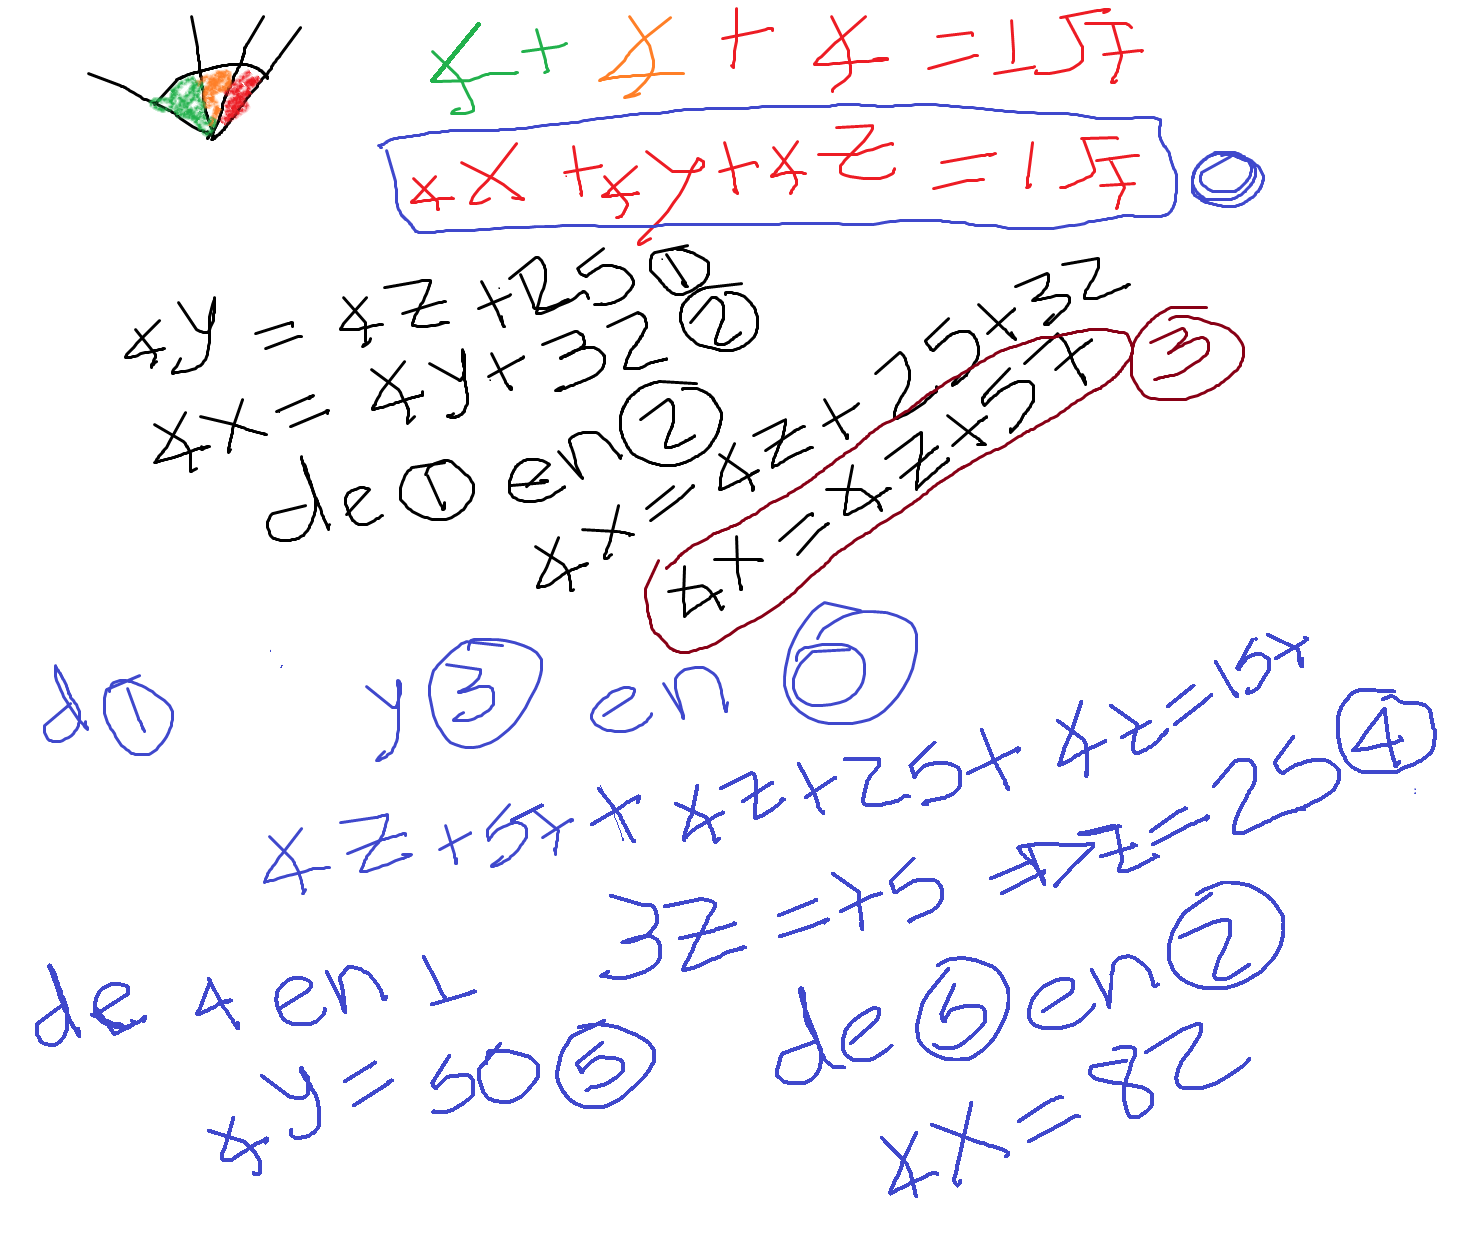 ∡ + ∡ + ∡ = 157
∡X + ∡y + ∡Z = 157 ⓪
∡y = ∡Z + 25 ①
∡X = ∡y + 32 ②
de ① en ②
∡X = ∡Z + 25 + 32
∡X = ∡Z + 57 ③
d ① y ③ en ⓪
∡Z + 57 + ∡Z + 25 + ∡Z = 157
3Z = 75 => Z = 25 ④
de 4 en 1
∡y = 50 ⑤
de ⑤ en ②
∡X = 82